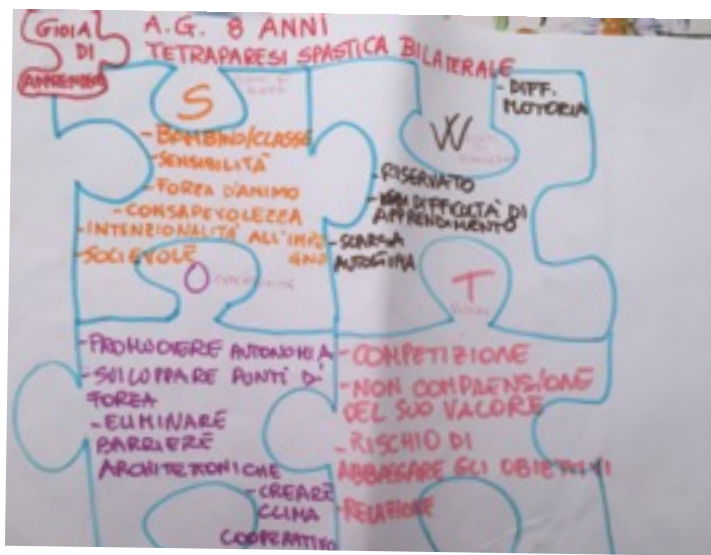 GIOIA
DI
APPRENDERE
A.G. 8 ANNI
TETRAPARESI SPASTICA BILATERALE
S
-BAMBINO/CLASSE
-SENSIBILITÀ
-FORZA D'ANIMO
-CONSAPEVOLEZZA
-INTENZIONALITÀ ALL'IMPE
GNO
-SOCIEVOLE
W
-DIFF.
MOTORIA
-RISERVATO
-DIFFICOLTÀ DI
APPRENDIMENTO
-SCARSA
AUTOSTIMA
O
-PROMUOVERE AUTONOMIA
-SVILUPPARE PUNTI DI
FORZA
-ELIMINARE
BARRIERE
ARCHITETTONICHE
-CREARE
CLIMA
COOPERATIVO
T
-COMPETIZIONE
-NON COMPRENSIONE
DEL SUO VALORE
-RISCHIO DI
ABBASSARE GLI OBIETTIVI
-RELAZIONE